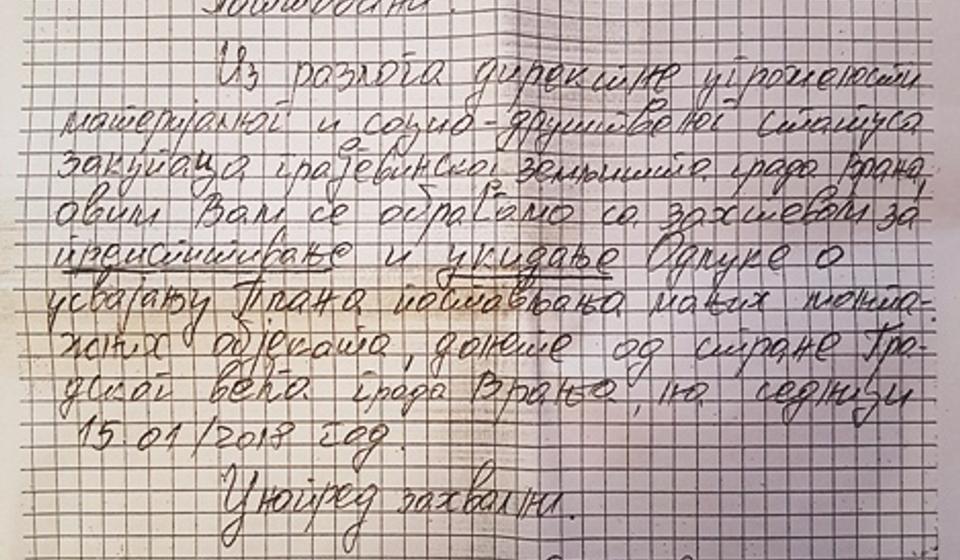 Поштовани.
Из разлога директне угрожености
материјалног и социо-друштвеног статуса
закупаца грађевинског земљишта града Врања,
овим Вам се обраћамо са захтевом за
преиспитивање и укидање Одлуке о
усвајању Плана постављања мањих монта-
жних објеката, донете од стране Гра-
дског већа града Врања, на седници
15.01/2018 год.
Унапред захвални.